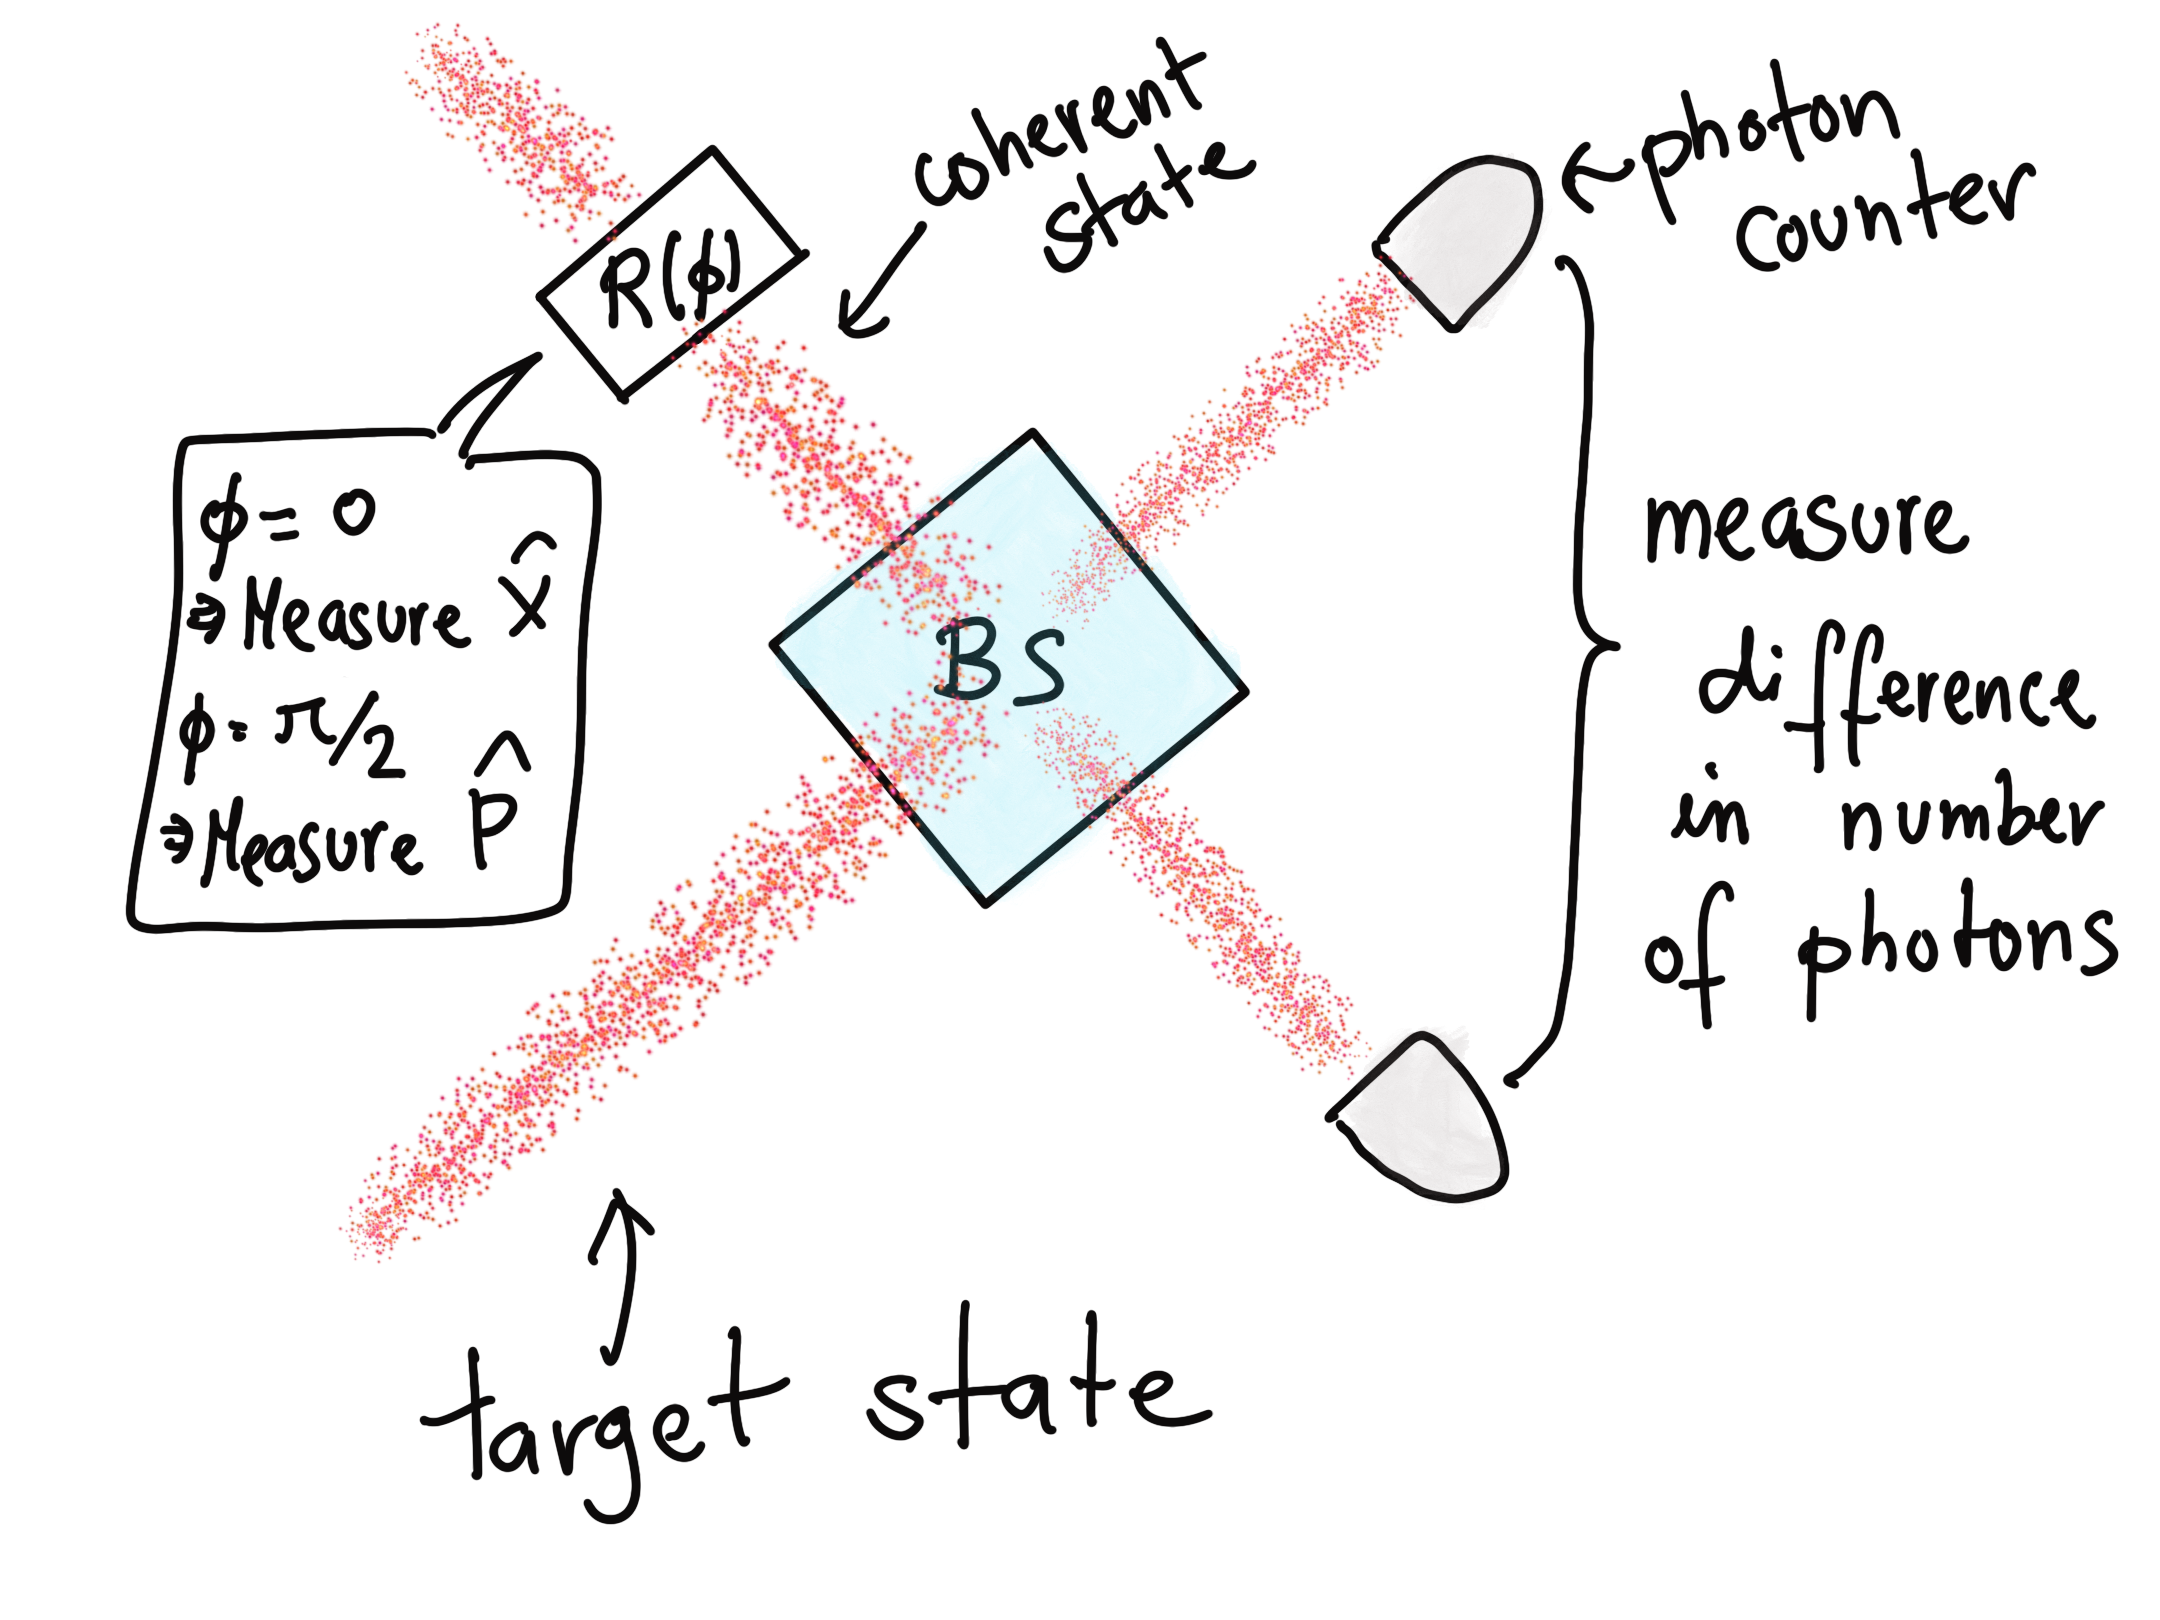 coherent
state
photon
counter
R(ϕ)
ϕ = 0
⇒ Measure X̂
ϕ = π/2
⇒ Measure P̂
BS
measure
difference
in number
of photons
target state